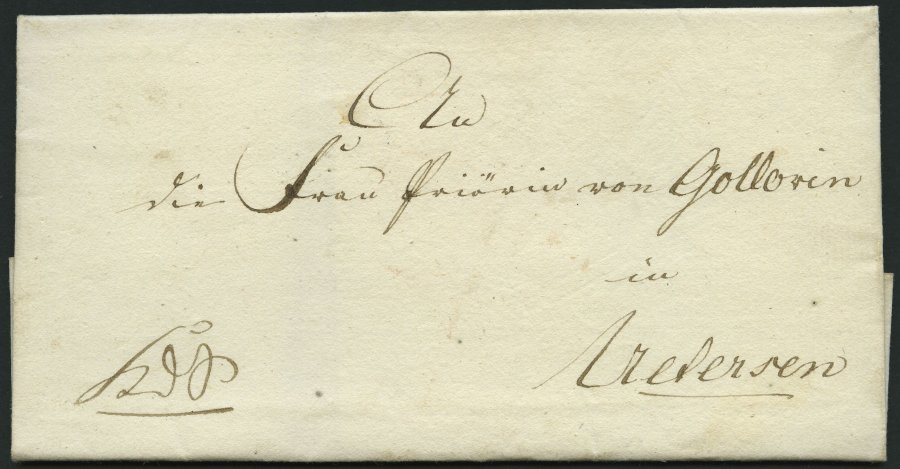 An
die Frau Priörin von Gollovin
in
Uetersen